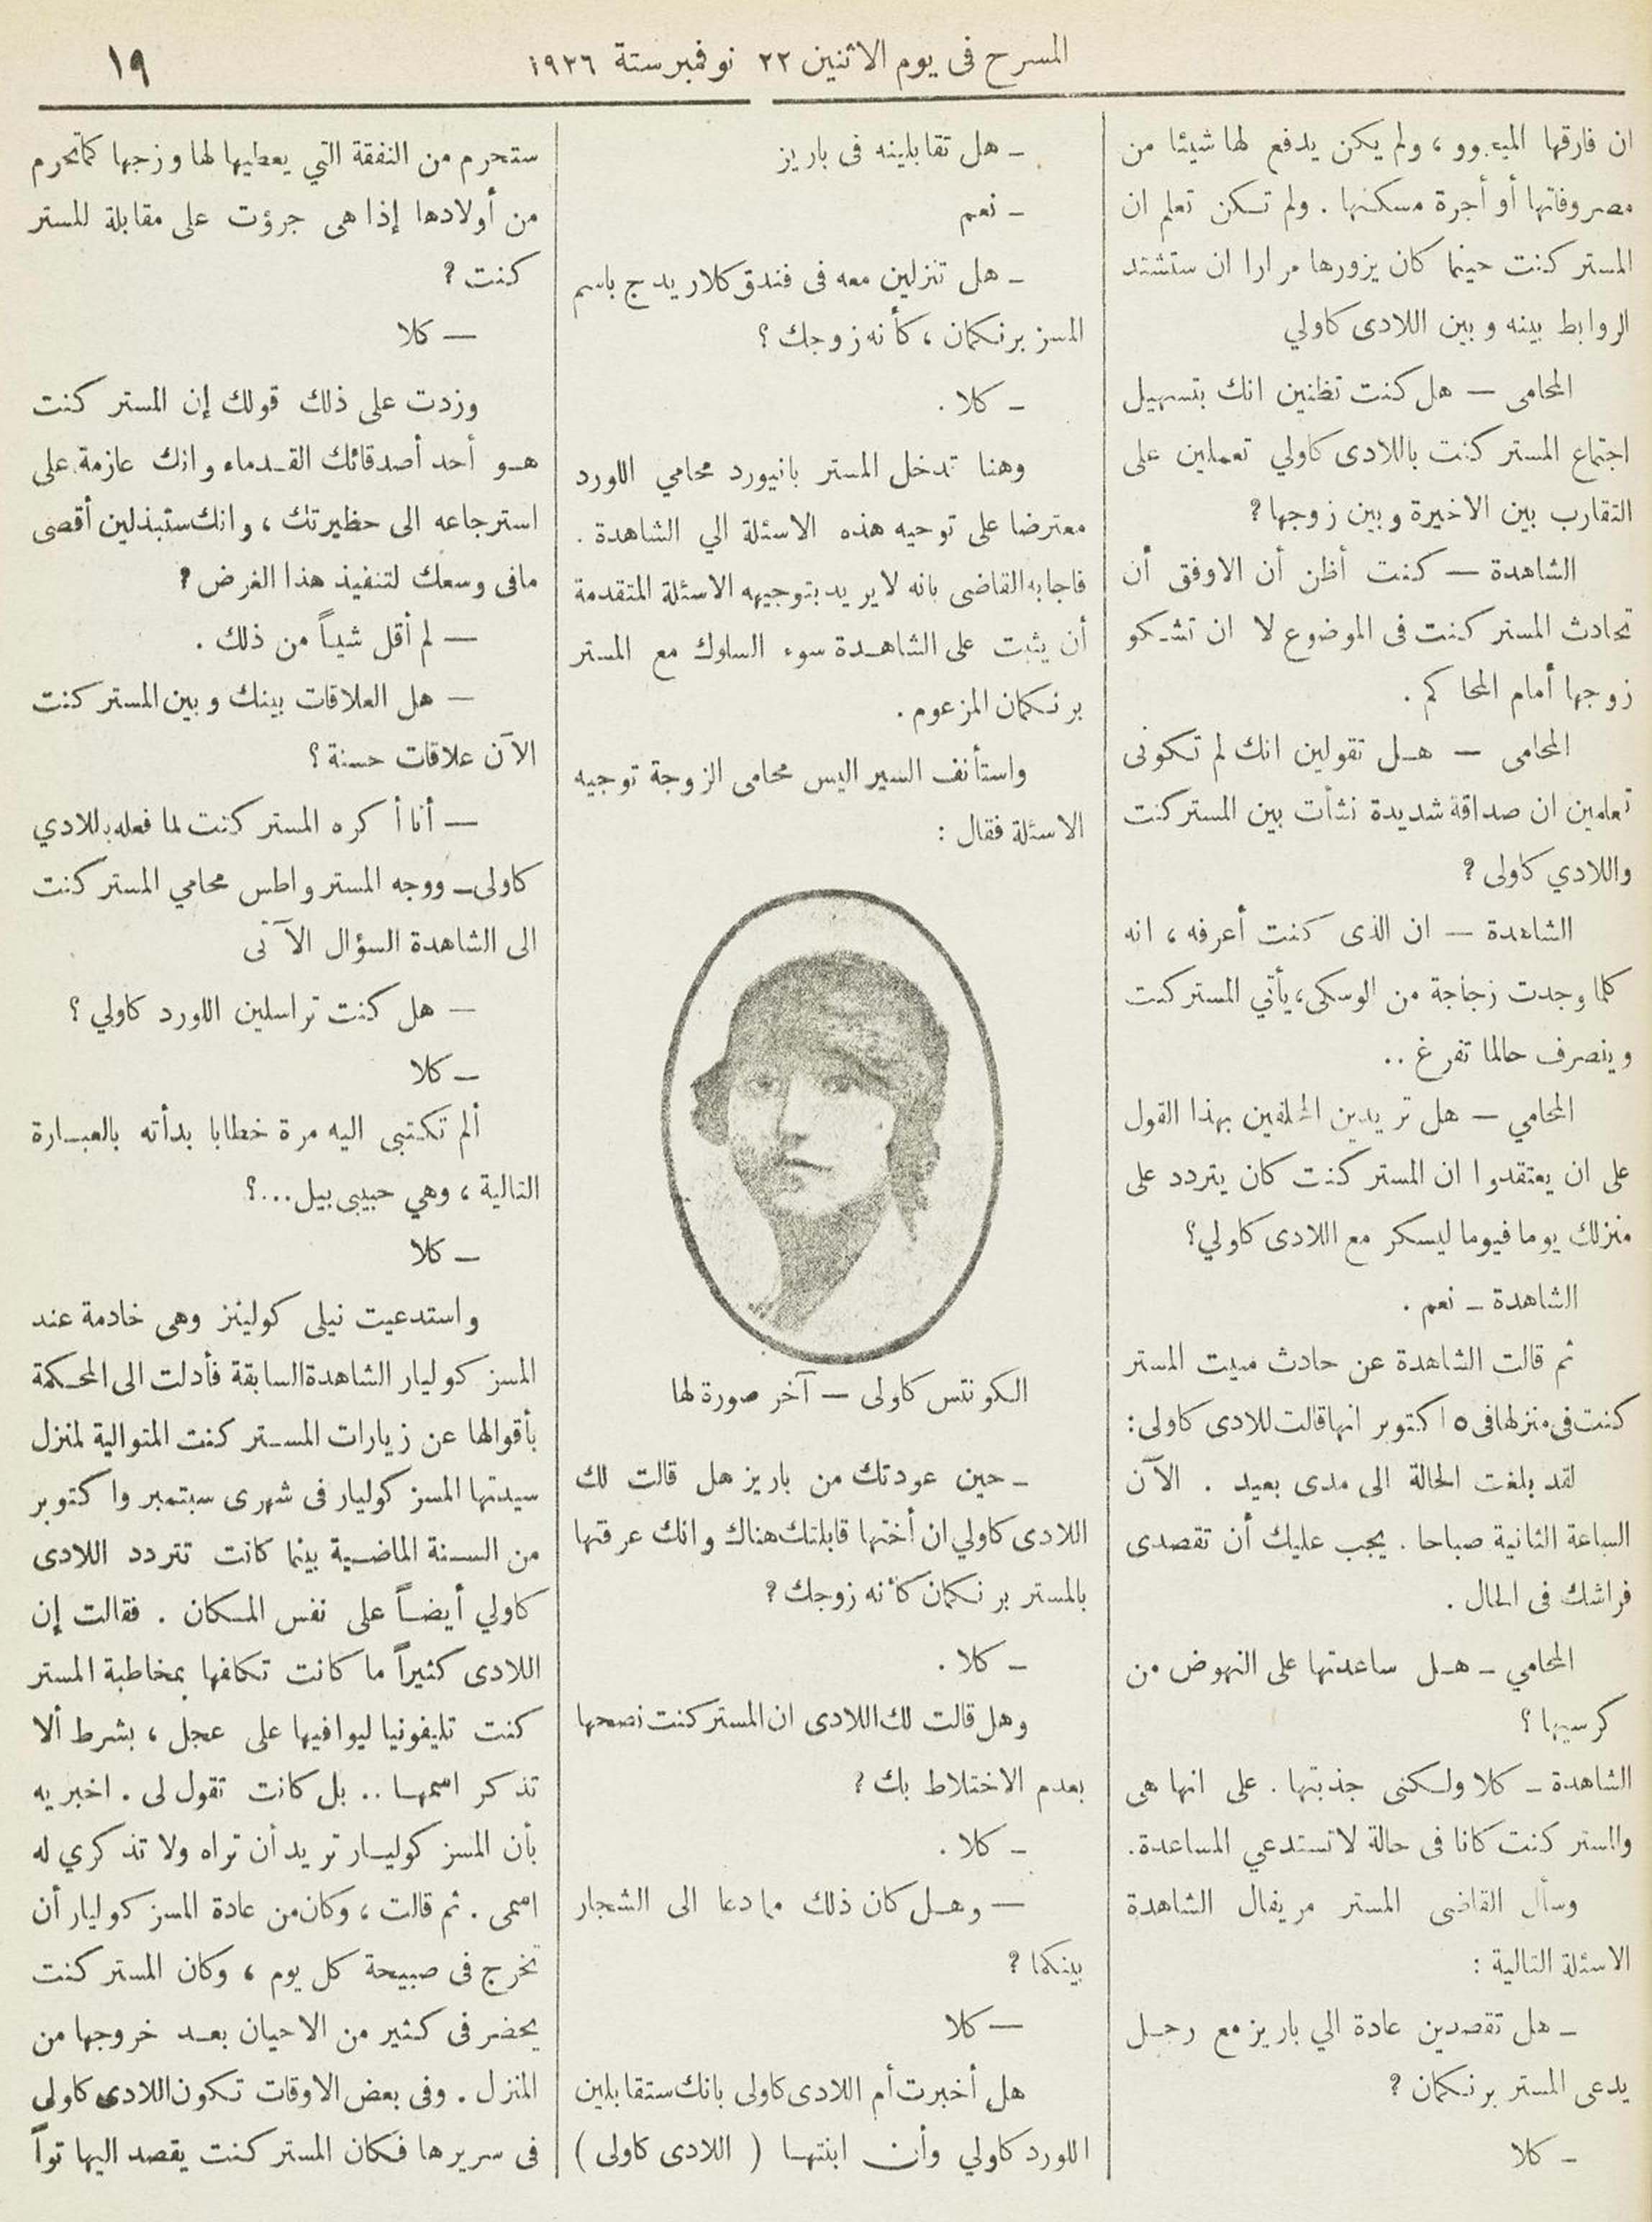 المسرح فى يوم الاثنين ٢٢ نوفمبر سنة ١٩٢٦
١٩
ان فارقها الميجور، ولم يكن يدفع لها شيئا من
مصروفاتها أو أجرة مسكنها . ولم تكن تعلم ان
المستر كنت حينما كان يزورها مرارا ان ستشتد
الروابط بينه وبين اللادى كاولي
المحامى — هل كنت تظنين انك بتسهيل
اجتماع المستر كنت باللادى كاولي تعملين على
التقارب بين الاخيرة وبين زوجها؟
الشاهدة — كنت أظن أن الاوفق أن
تحادث المستر كنت فى الموضوع لا ان تشكو
زوجها أمام المحاكم .
المحامى — هل تقولين انك لم تكونى
تعلمين ان صداقة شديدة نشأت بين المستر كنت
واللادي كاولى؟
الشاهدة — ان الذى كنت أعرفه ، انه
كلما وجدت زجاجة من الوسكى، يأتي المستر كنت
وينصرف حالما تفرغ ..
المحامي — هل تريدين المحلفين بهذا القول
على ان يعتقدوا ان المستر كنت كان يتردد على
منزلك يوما فيوما ليسكر مع اللادى كاولي؟
الشاهدة - نعم .
ثم قالت الشاهدة عن حادث مبيت المستر
كنت فى منزلها فى ١٥ كتوبر انها قالت للادى كاولى :
لقد بلغت الحالة الى مدى بعيد . الآن
الساعة الثانية صباحا . يجب عليك أن تقصدى
فراشك فى الحال .
المحامي - هل ساعدتها على النهوض من
كرسيها ؟
الشاهدة - كلا ولكنى جذبتها . على انها هى
والمستر كنت كانا فى حالة لا تستدعي المساعدة .
وسأل القاضى المستر مريفال الشاهدة
الاسئلة التالية :
- هل تقصدين عادة الي باريز مع رجل
يدعى المستر برنكمان ؟
- كلا
- هل تقابلينه فى باريز
- نعم
- هل تنزلين معه فى فندق كلاريدج باسم
المسز برنكمان ، كأنه زوجك ؟
- كلا .
وهنا تدخل المستر بانيورد محامي اللورد
معترضا على توجيه هذه الاسئلة الي الشاهدة .
فاجابه القاضى بانه لا يريد بتوجيهه الاسئلة المتقدمة
أن يثبت على الشاهدة سوء السلوك مع المستر
برنكمان المزعوم .
واستأنف السير اليس محامى الزوجة توجيه
الاسئلة فقال :
الكونتس كاولى — آخر صورة لها
- حين عودتك من باريز هل قالت لك
اللادى كاولي ان أختها قابلتك هناك وانك عرفتها
بالمستر برنكمان كأنه زوجك ؟
- كلا .
وهل قالت لك اللادى ان المستر كنت نصحها
بعدم الاختلاط بك ؟
- كلا .
— وهل كان ذلك مما دعا الى الشجار
بينكما ؟
— كلا
هل أخبرت أم اللادى كاولى بانك ستقابلين
اللورد كاولي وأن ابنتها ( اللادى كاولى )
ستحرم من النفقة التي يعطيها لها وزجها كما تحرم
من أولادها إذا هى جرؤت على مقابلة للمستر
كنت ؟
— كلا
وزدت على ذلك قولك إن المستر كنت
هو أحد أصدقائك القدماء وانك عازمة على
استرجاعه الى حظيرتك ، وانك ستبذلين أقصى
مافى وسعك لتنفيذ هذا الغرض ؟
— لم أقل شيأً من ذلك .
— هل العلاقات بينك وبين المستر كنت
الآن علاقات حسنة ؟
— أنا أكره المستر كنت لما فعله باللادي
كاولى - ووجه المستر واطس محامي المستر كنت
الى الشاهدة السؤال الآتى
— هل كنت تراسلين اللورد كاولي ؟
- كلا
ألم تكتبى اليه مرة خطابا بدأته بالعبارة
التالية ، وهي حبيبى بيل...؟
- كلا
واستدعيت نيلى كولينز وهى خادمة عند
المسز كوليار الشاهدة السابقة فأدلت الى المحكمة
بأقوالها عن زيارات المستر كنت المتوالية لمنزل
سيدتها المسز كوليار فى شهرى سبتمبر واكتوبر
من السنة الماضية بينما كانت تتردد اللادى
كاولي أيضاً على نفس المكان . فقالت إن
اللادى كثيراً ما كانت تكلفها بمخاطبة المستر
كنت تليفونيا ليوافيها على عجل ، بشرط ألا
تذكر اسمها .. بل كانت تقول لى . اخبريه
بأن المسز كوليار تريد أن تراه ولا تذكري له
اسمى . ثم قالت ، وكان من عادة المسز كوليار أن
تخرج فى صبيحة كل يوم ، وكان المستر كنت
يحضر فى كثير من الاحيان بعد خروجها من
المنزل . وفى بعض الاوقات تكون اللادى كاولى
فى سريرها فكان المستر كنت يقصد اليها تواً